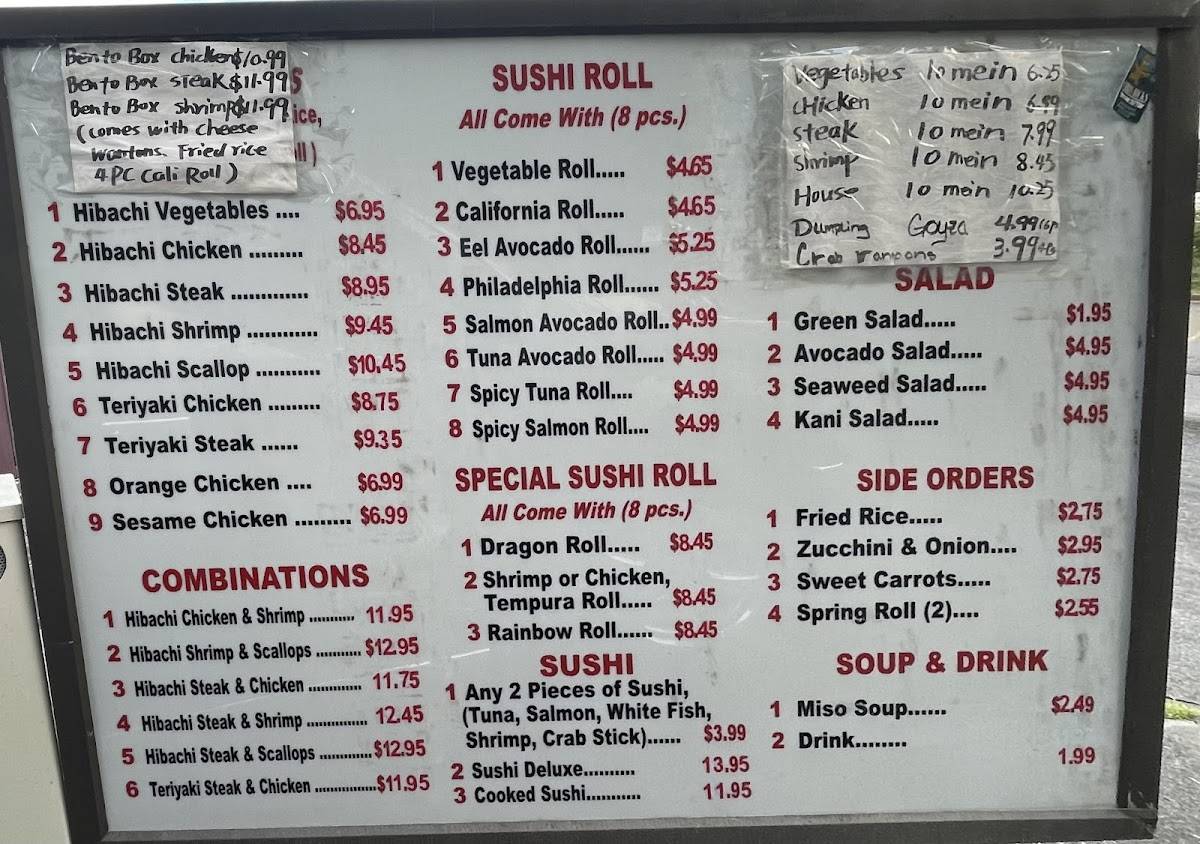 Bento Box chicken $10.99
Bento Box steak $11.99
Bento Box shrimp $11.99
(comes with cheese
wontons. Fried rice
4 PC Cali Roll)
S
ice,
ll)
1 Hibachi Vegetables .... $6.95
2 Hibachi Chicken ......... $8.45
3 Hibachi Steak ............. $8.95
4 Hibachi Shrimp ............ $9.45
5 Hibachi Scallop ........... $10,45
6 Teriyaki Chicken ......... $8.75
7 Teriyaki Steak ...... $9.35
8 Orange Chicken .... $6.99
9 Sesame Chicken ......... $6.99
COMBINATIONS
1 Hibachi Chicken & Shrimp ........... 11.95
2 Hibachi Shrimp & Scallops ........... $12.95
3 Hibachi Steak & Chicken ............. 11.75
4 Hibachi Steak & Shrimp ............... 12.45
5 Hibachi Steak & Scallops ............ $12.95
6 Teriyaki Steak & Chicken ............... $11.95
SUSHI ROLL
All Come With (8 pcs.)
1 Vegetable Roll..... $4.65
2 California Roll..... $4.65
3 Eel Avocado Roll...... $5.25
4 Philadelphia Roll...... $5.25
5 Salmon Avocado Roll.. $4.99
6 Tuna Avocado Roll..... $4.99
7 Spicy Tuna Roll.... $4.99
8 Spicy Salmon Roll.... $4.99
SPECIAL SUSHI ROLL
All Come With (8 pcs.)
1 Dragon Roll..... $8.45
2 Shrimp or Chicken,
Tempura Roll..... $8.45
3 Rainbow Roll...... $8.45
SUSHI
1 Any 2 Pieces of Sushi,
(Tuna, Salmon, White Fish,
Shrimp, Crab Stick)...... $3.99
2 Sushi Deluxe.......... 13.95
3 Cooked Sushi........... 11.95
Vegetables lo mein 6.25
CHicken lo mein 6.99
steak lo mein 7.99
Shrimp lo mein 8.45
House lo mein 10.25
Dumpling Goyza 4.99
Crab 3.99
SALAD
1 Green Salad..... $1.95
2 Avocado Salad..... $4.95
3 Seaweed Salad..... $4.95
4 Kani Salad..... $4.95
SIDE ORDERS
1 Fried Rice..... $2.75
2 Zucchini & Onion.... $2.95
3 Sweet Carrots..... $2.75
4 Spring Roll (2).... $2.55
SOUP & DRINK
1 Miso Soup...... $2.49
2 Drink........ 1.99